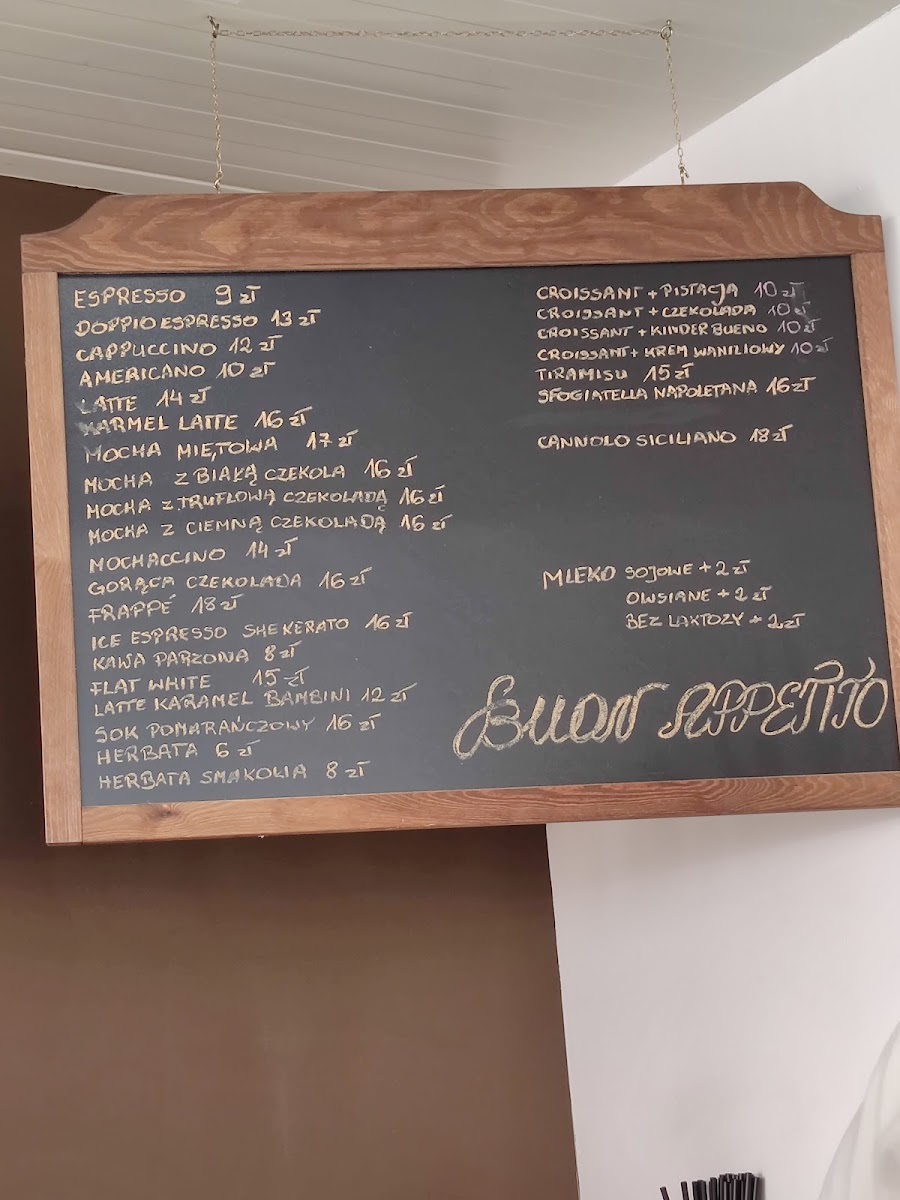 ESPRESSO 9 zł
DOPPIO ESPRESSO 13 zł
CAPPUCCINO 12 zł
AMERICANO 10 zł
LATTE 14 zł
KARMEL LATTE 16 zł
MOCHA MIĘTOWA 17 zł
MOCHA Z BIAŁĄ CZEKOLA 16 zł
MOCHA Z TRUFLOWĄ CZEKOLADĄ 16 zł
MOCHA Z CIEMNĄ CZEKOLADĄ 16 zł
MOCHACCINO 14 zł
GORĄCA CZEKOLADA 16 zł
FRAPPÉ 18 zł
ICE ESPRESSO SHEKERATO 16 zł
KAWA PARZONA 8 zł
FLAT WHITE 15 zł
LATTE KARAMEL BAMBINI 12 zł
SOK POMARAŃCZOWY 16 zł
HERBATA 6 zł
HERBATA SMAKOLIA 8 zł
CROISSANT + PISTACJA 10 zł
CROISSANT + CZEKOLADA 10 zł
CROISSANT + KINDER BUENO 10 zł
CROISSANT + KREM WANILIOWY 10 zł
TIRAMISU 15 zł
SFOGIATELLA NAPOLETANA 16 zł
CANNOLO SICILIANO 18 zł
MLEKO SOJOWE + 2 zł
OWSIANE + 2 zł
BEZ LAKTOZY + 2 zł
BUON APPETITO